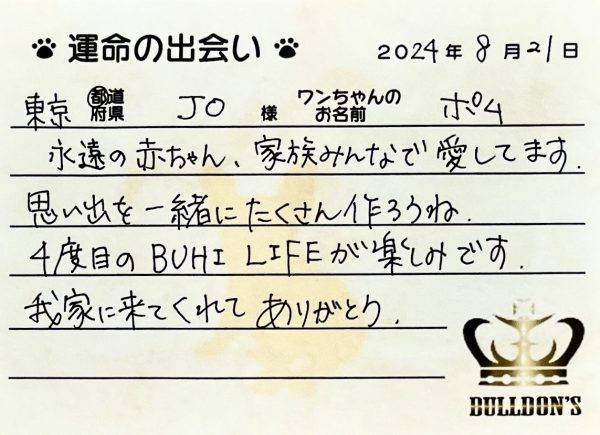 運命の出会い 2024年8月21日
東京 都道府県 JO 様 ワンちゃんのお名前 ポム
永遠の赤ちゃん、家族みんなで愛してます.
思い出を一緒にたくさん作ろうね.
4度目のBUHI LIFEが楽しみです.
我家に来てくれてありがとう.
BULLDON'S